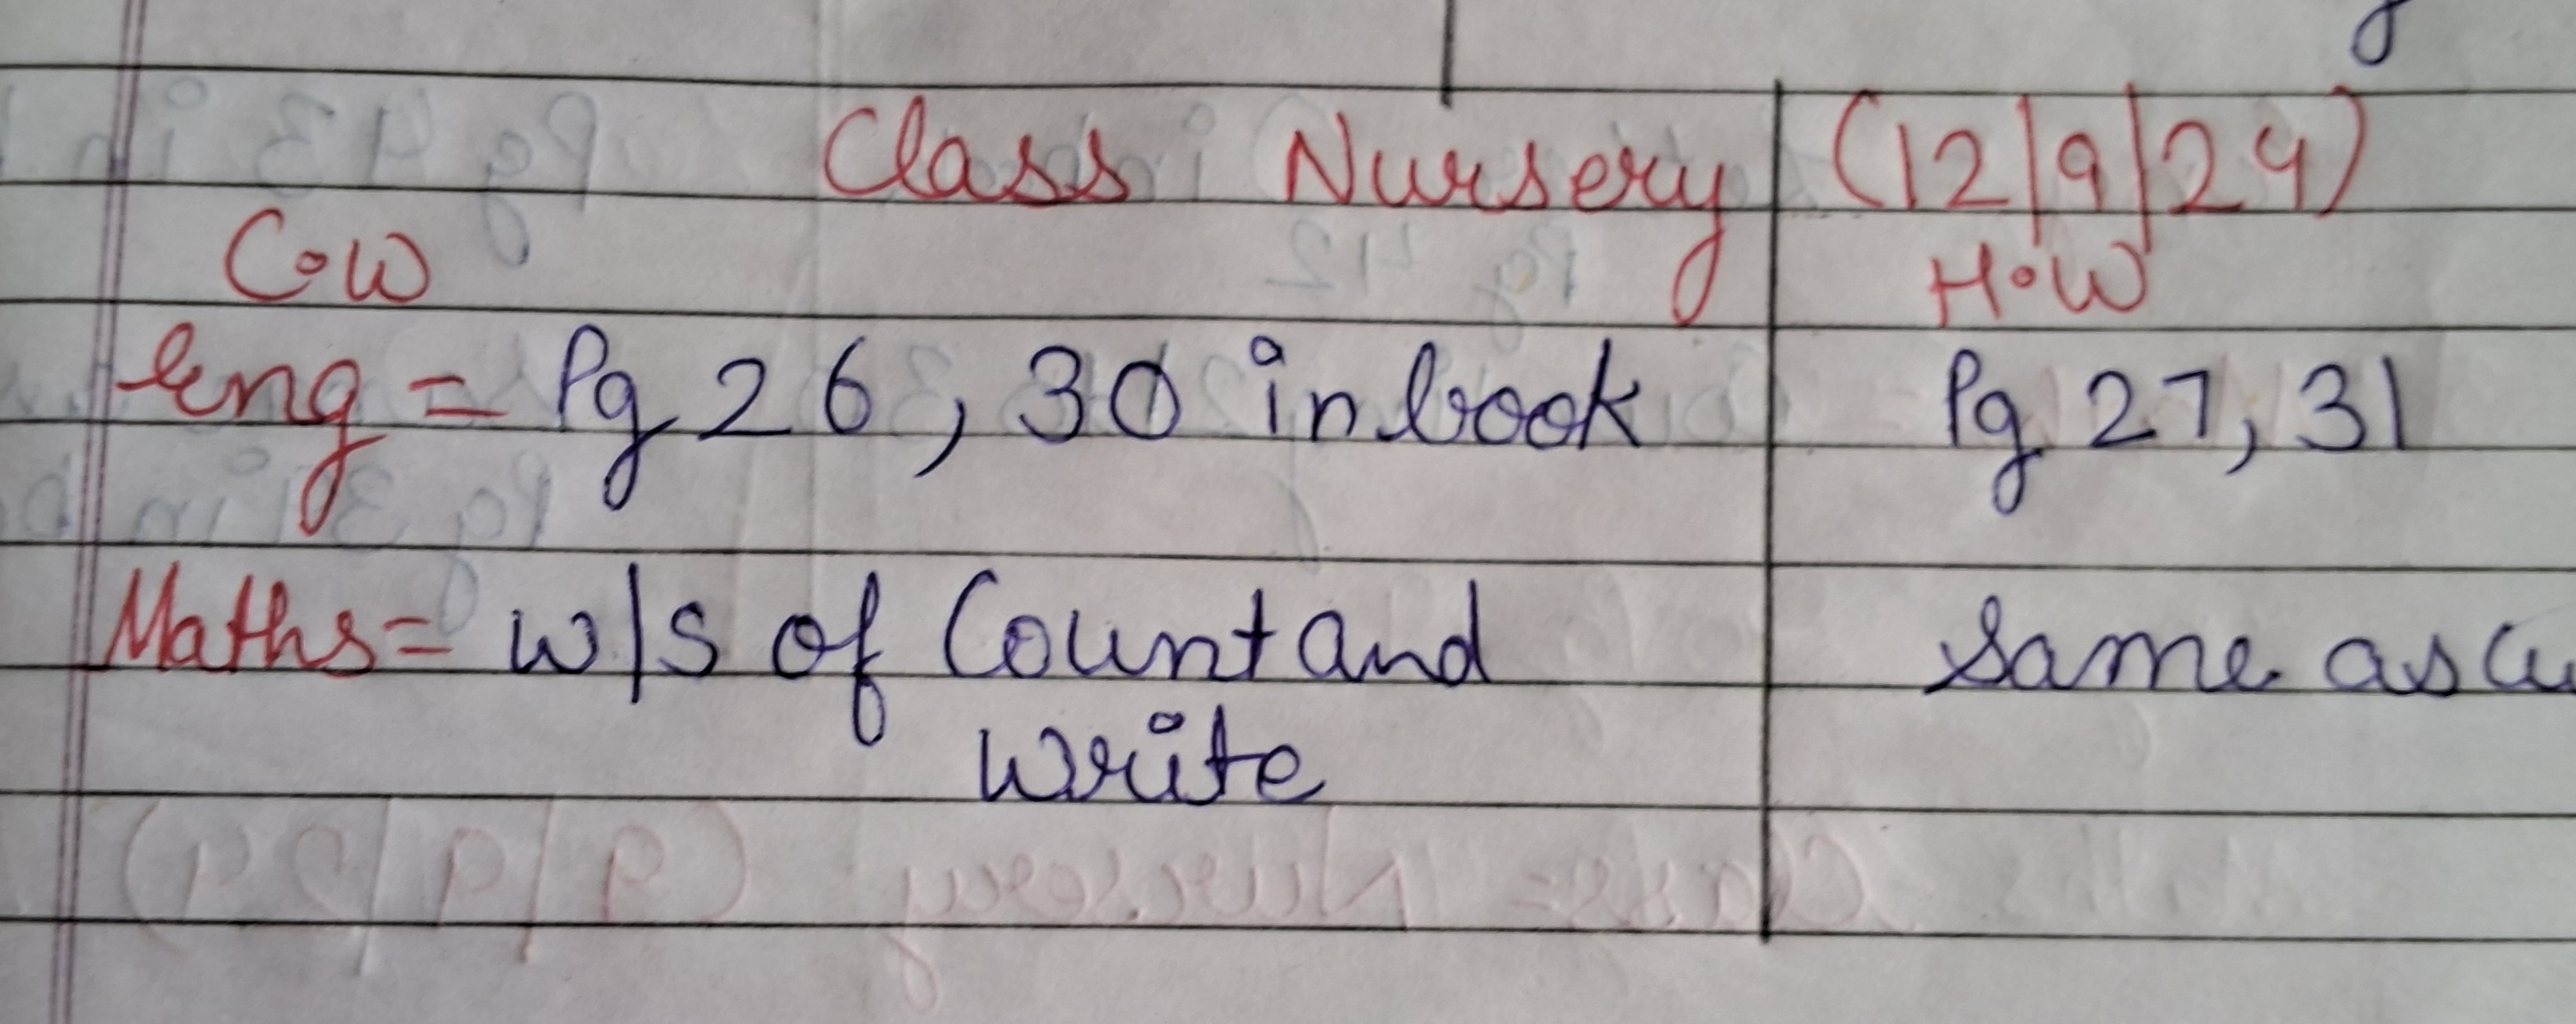 Class Nursery (12/9/24)
C.W H.W
Eng = Pg 26, 30 in book Pg 27, 31
Maths = W/S of Count and Same as
Write